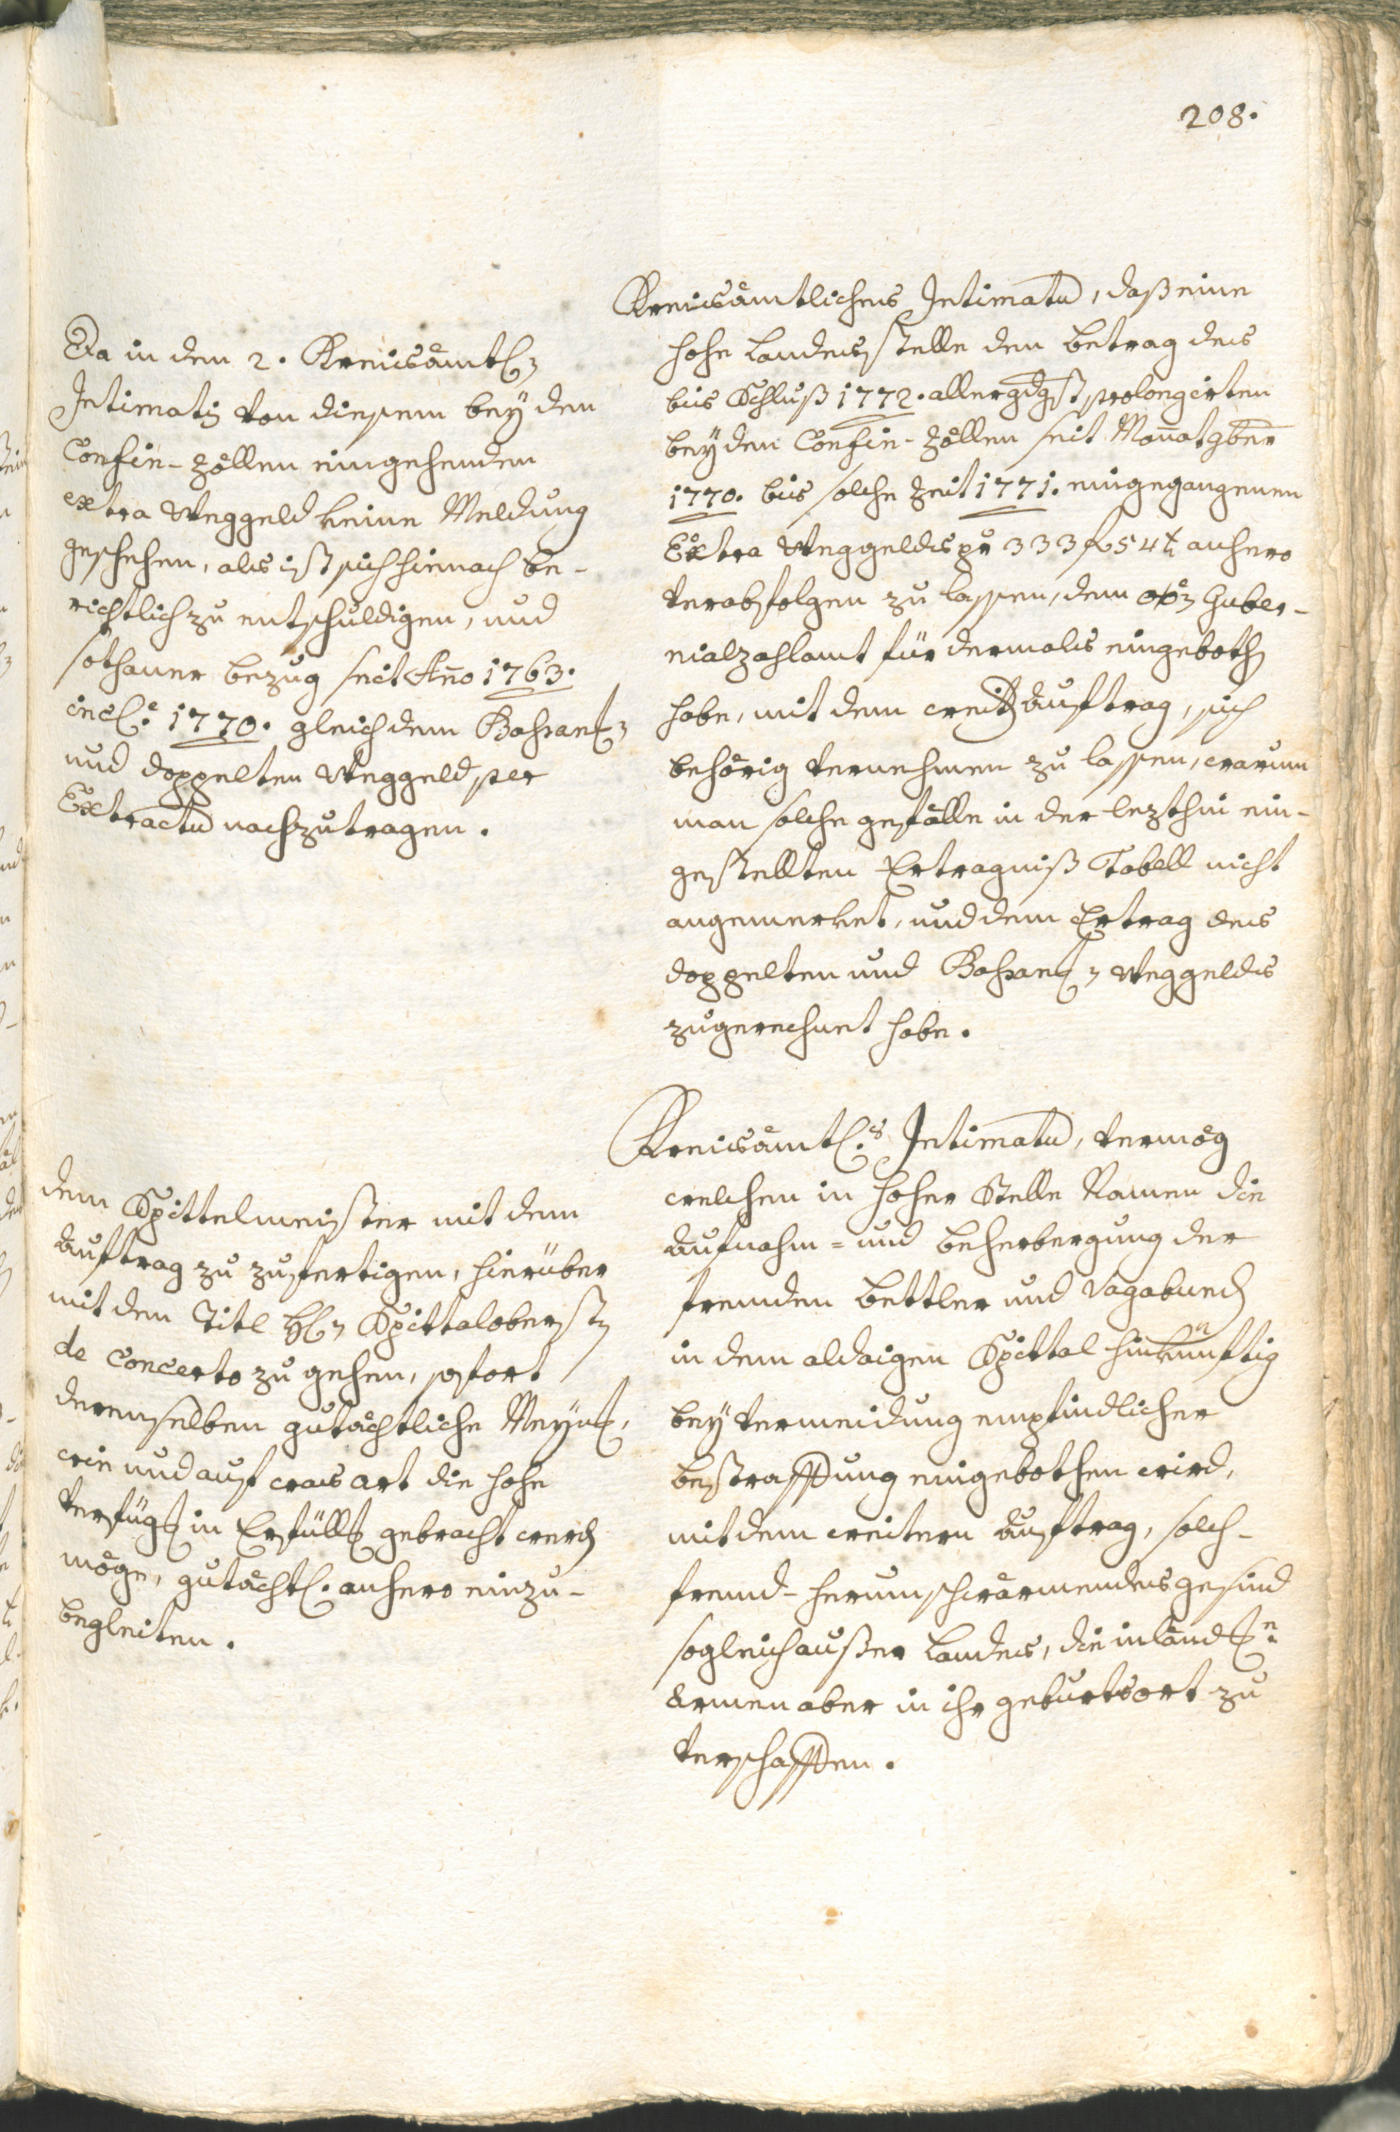 208.
Kreisämtliches Intimatum, daß eine
hohe Landesstelle den betrag des
bis Schluß 1772. allergdgst prolongirten
bey den Confin-Zöllen seit Monat 9ber
1770. bis solche Zeit 1771. eingegangenen
Extra Weggeldis pr 333 f 54 anhero
verabfolgen zu lassen, dem Guber-
nialzahlamt für dermals eingebothen
habe, mit dem weitern auftrag, sich
behörig vernehmen zu lassen, warum
man solche gefälle in der lezthin ein-
gestellten Ertragniß Tabell nicht
angemerket, und dem Ertrag des
doppelten und Weggeldis
zugerechnet habe.
Da in den 2. Kreisämtl:
Intimatis von diesem bey den
Confin-Zöllen eingehenden
extra Weggeld keine Meldung
geschehen, als ist sich hiernach be-
richtlich zu entschuldigen, und
sothaner bezug seit Anno 1763.
incl: 1770. gleich dem
und doppelten Weggeld per
Extractum nachzutragen.
Kreisämtl:s Intimatum, vermög
welchem in hoher Stelle Namen die
aufnahm- und beherbergung der
fremden bettler und Vagabunden
in dem aldaigen Spittal hinkünftig
bey vermeidung empfindlicher
bestraffung eingebothen wird,
mit dem weitern auftrag, solch-
fremd-herumschwärmendes gesind
sogleich außer Landes, die inländ:n
armen aber in ihr geburtsort zu
verschaffen.
dem Spittelmeister mit dem
auftrag zu zufertigen, hierüber
mit dem Titl H: Spittalobersten
de concerto zu gehen, sofort
derenselben gutächtliche Meynung,
wie und auf was art die hohe
verfügung in Erfüllung gebracht werden
möge, gutächtl: anhero einzu-
begleiten.